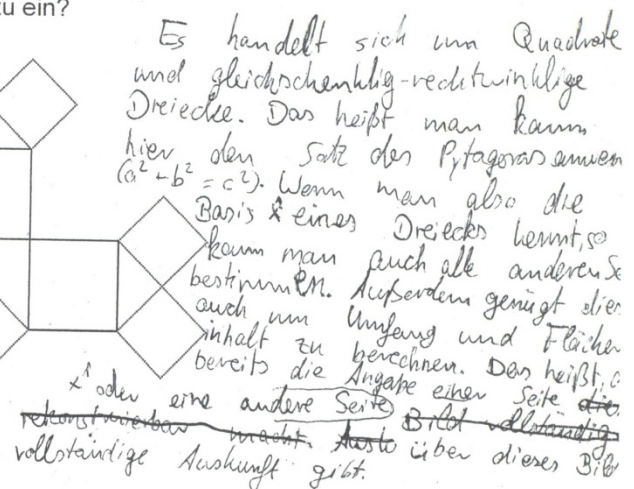 zu ein?
Es handelt sich um Quadrate
und gleichschenklig-rechtwinklige
Dreiecke. Das heißt man kann
hier den Satz des Pytagoras anwen
(a² + b² = c²). Wenn man also die
Basis x¹ eines Dreiecks kennt, so
kann man auch alle anderen Se
bestimmen. Außerdem genügt dies
auch um Umfang und Flächen
inhalt zu berechnen. Das heißt, d
bereits die Angabe einer Seite dies
x¹ oder eine andere Seite Bild vollständig
rekonstruierbar macht. Ausk über dieses Bild
vollständige Auskunft gibt.